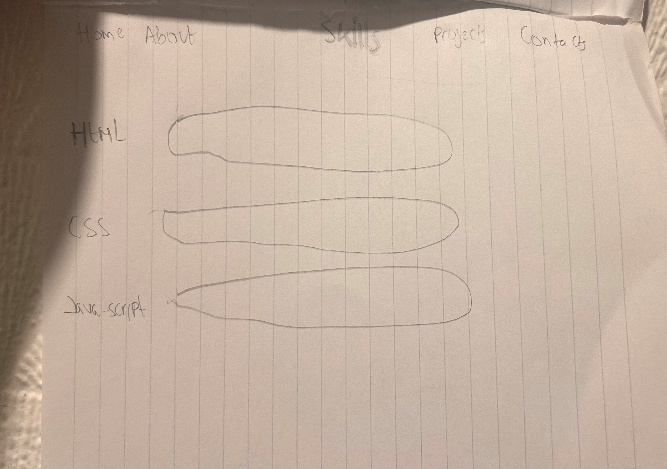 Home About Skills Projects Contacts
HTML
CSS
Java-script